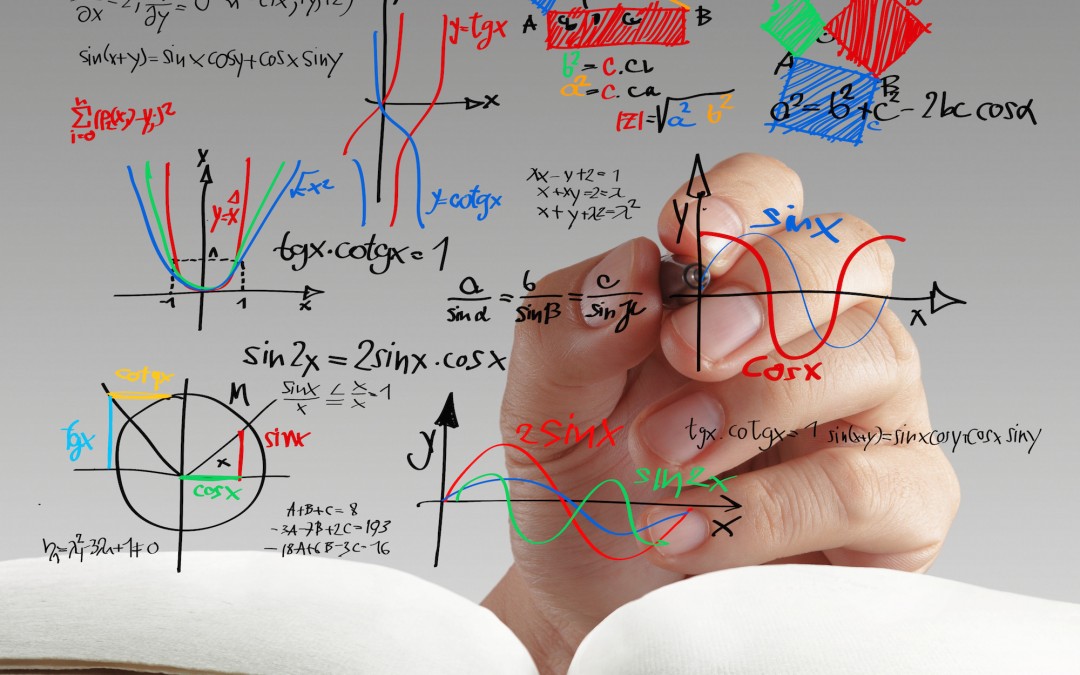 sin(x+y)=sinxcosy+cosx siny
y=tgx
A
B
b²=c.cb
a²=c.ca
|z|=√a² b²
A
B
c
a²=b²+c²-2bc cosα
y
√x²
y=x
-1
1
x
x
y=cotgx
tgx.cotgx=1
xx-y+2=1
x+xy=2=x
a/sinα = b/sinβ = c/sin
y
sinx
x
cosx
sin2x=2sinx.cosx
cotgx
M
sinx/x ≤ x/x=1
tgx
sinx
x
cosx
y
2sinx
sin2x
x
tgx.cotgx=1 sin(x+y)=sinxcosy+cosx siny
A+B+C=8
-3A-7B+2C=193
-18A+6B-3C=16